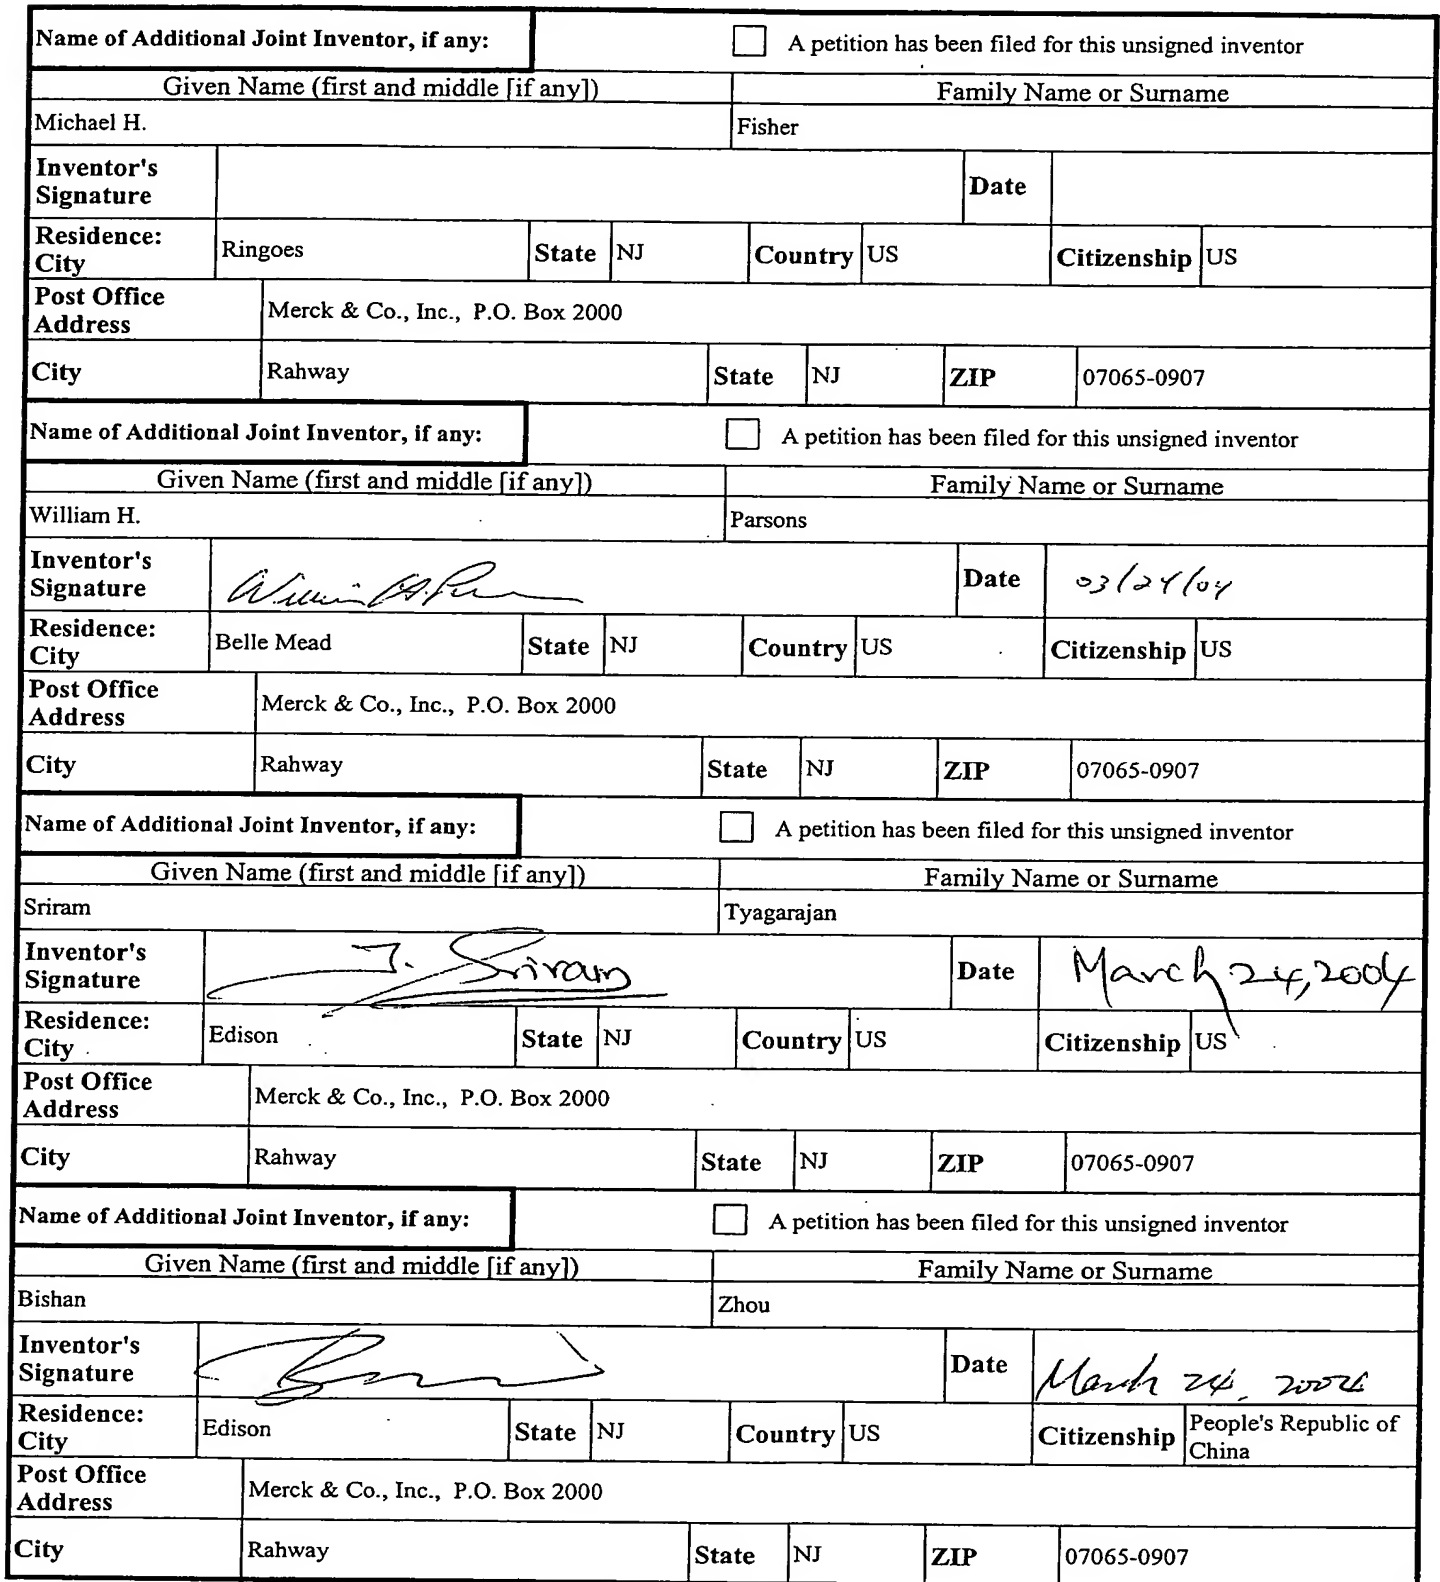 Name of Additional Joint Inventor, if any: A petition has been filed for this unsigned inventor
Given Name (first and middle [if any]) Family Name or Surname
Michael H. Fisher
Inventor's Signature Date
Residence: City Ringoes State NJ Country US Citizenship US
Post Office Address Merck & Co., Inc., P.O. Box 2000
City Rahway State NJ ZIP 07065-0907
Name of Additional Joint Inventor, if any: A petition has been filed for this unsigned inventor
Given Name (first and middle [if any]) Family Name or Surname
William H. Parsons
Inventor's Signature Date 03/24/04
Residence: City Belle Mead State NJ Country US Citizenship US
Post Office Address Merck & Co., Inc., P.O. Box 2000
City Rahway State NJ ZIP 07065-0907
Name of Additional Joint Inventor, if any: A petition has been filed for this unsigned inventor
Given Name (first and middle [if any]) Family Name or Surname
Sriram Tyagarajan
Inventor's Signature T. Sriram Date March 24, 2004
Residence: City Edison State NJ Country US Citizenship US
Post Office Address Merck & Co., Inc., P.O. Box 2000
City Rahway State NJ ZIP 07065-0907
Name of Additional Joint Inventor, if any: A petition has been filed for this unsigned inventor
Given Name (first and middle [if any]) Family Name or Surname
Bishan Zhou
Inventor's Signature Date March 24, 2004
Residence: City Edison State NJ Country US Citizenship People's Republic of China
Post Office Address Merck & Co., Inc., P.O. Box 2000
City Rahway State NJ ZIP 07065-0907